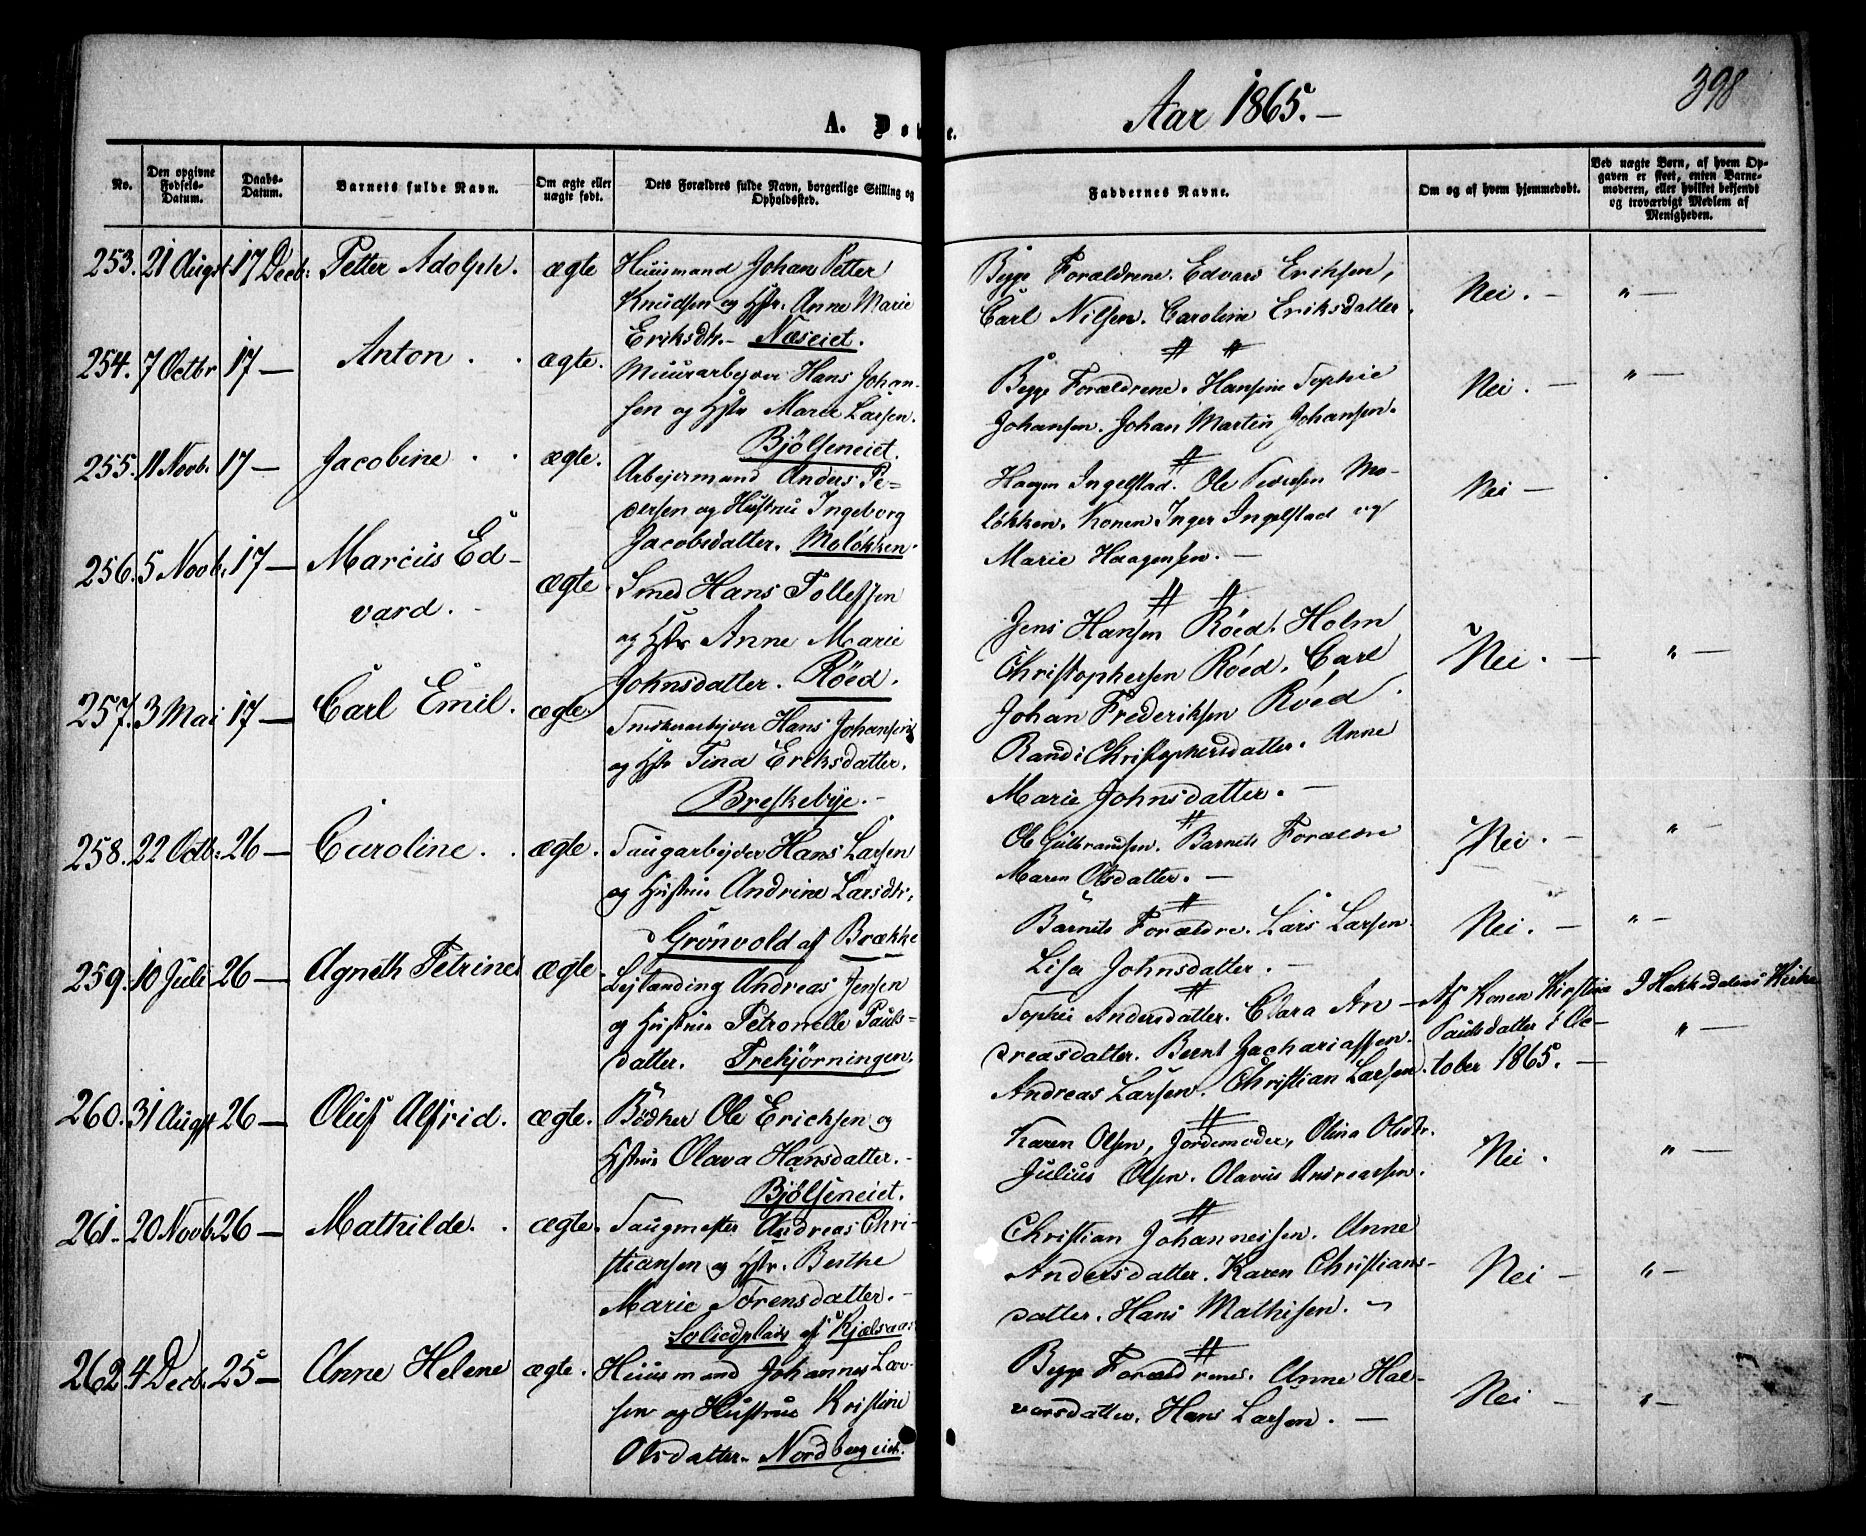 398
A. Døbte.
Aar 1865. —
No.
Den opgivne Fødsels-Datum.
Daabs-Datum.
Barnets fulde Navn.
Om ægte eller uægte født.
Dets Forældres fulde Navn, borgerlige Stilling og Opholdssted.
Faddernes Navne.
Om og af hvem hjemmedøbt.
Ved uægte Børn, af hvem Opgaven er skeet, enten Barnemoderen, eller hvilket bekjendt og troværdigt Medlem af Menigheden.
253. 21 Augst 17 Decb. Petter Adolph. ægte Huusmand Johan Petter
Knudsen og Hstr. Anne Marie
Eriksdtr. — Næseiet.
Begge Forældrene. Edvard Eriksen,
Carl Nilsen. Caroline Eriksdatter.
Nei. — " —
254. 7 Octbr 17 — Anton . . ægte. Muurarbejder Hans Johan-
sen og Hstr Marie Larsen.
Bjølseneiet.
Begge Forældrene. Hansine Sophie
Johansen. Johan Martin Johansen.
Nei. — " —
255. 11 Novb. 17 — Jacobine . . ægte. Arbejdermand Anders Pe-
dersen og Hustru Ingeborg
Jacobsdatter. Moløkken.
Haagen Ingelstad. Ole Pedersen Mo-
løkken. Konen Inger Ingelstad og
Marie Haagensen. —
Nei —
256. 5 Novb. 17 — Marcus Ed-
vard. ægte. Smed Hans Tollefsen
og Hstr Anne Marie
Johnsdatter. Røed.
Jens Hansen Røed. Holm
Christophersen Røed. Carl
Johan Frederiksen Røed.
Randi Christophersdatter. Anne
Marie Johnsdatter. —
Nei. — " —
257. 3 Mai 17 — Carl Emil. ægte. Snedkerarbejder Hans Johansen
og Hstr Tina Eriksdatter.
Breskebye. —
Ole Gulbrandsen. Barnets Forældre
Maren Olsdatter. —
Nei. — " —
258. 22 Octb. 26 — Caroline. . ægte. Saugarbejder Hans Larsen
og Hustru Andrine Larsdtr.
Grönvold af Brække
Barnets Forældre. Lars Larsen.
Lisa Johnsdatter. —
Nei. — " —
259. 10 Juli 26 — Agneth Petrine ægte. Lejlænding Andreas Jensen
og Hustru Petronelle Pauls-
datter. Trehjørningen.
Sophie Andersdatter. Clara An-
dreasdatter. Bernt Zachariassen.
Andreas Larsen. Christian Larsen.
Af Konen Kirstine
Paulsdatter i Oc-
tober 1865. —
I Hakkedalens Kirke
" —
260. 31 Augst 26 — Oluf Alfrid. ægte. Bødker Ole Erichsen og
Hstru Olava Hansdatter. —
Bjølseneiet.
Karen Olsen, Jordemoder, Olina Olsdtr.
Julius Olsen. Olavus Andreassen.
Nei. " —
261. 20 Novb. 26 — Mathilde. . ægte. Saugmester Andreas Chri-
stiansen og Hstr. Berthe
Marie Sørensdatter. —
af Kjelsaas
Christian Johannessen. Anne
Andersdatter. Karen Christians-
datter. Hans Mathisen. —
Nei — " —
262. 4 Decb. 25 — Anne Helene ægte. Huusmand Johannes Lar-
sen og Hustrue Kristine
Olsdatter. Nordbergeiet.
Begge Forældrenes. Anne Hal-
vorsdatter. Hans Larsen. —
Nei — " —